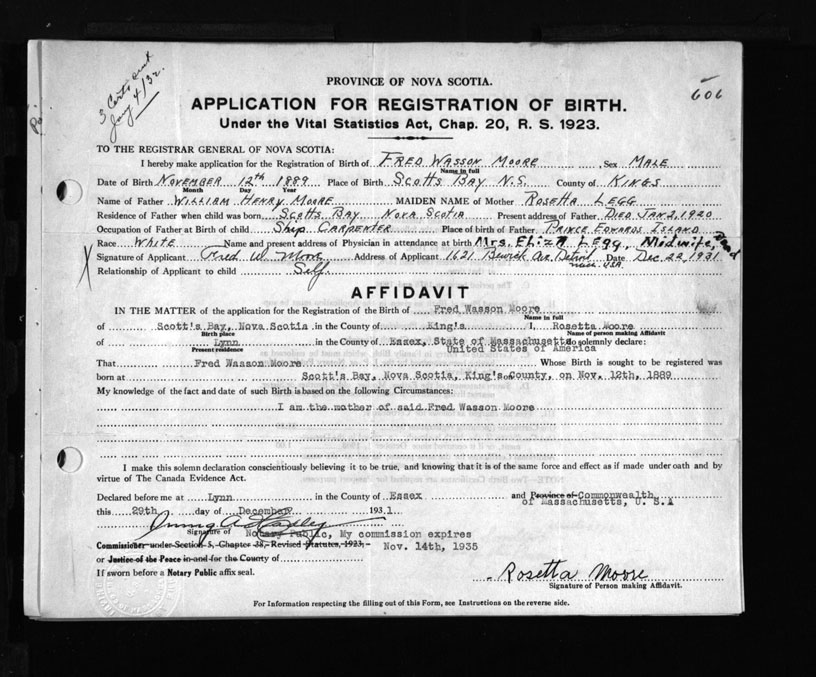 3 Certs sent
Jany 4/32.
606
PROVINCE OF NOVA SCOTIA.
APPLICATION FOR REGISTRATION OF BIRTH.
Under the Vital Statistics Act, Chap. 20, R. S. 1923.
TO THE REGISTRAR GENERAL OF NOVA SCOTIA:
I hereby make application for the Registration of Birth of FRED WASSON MOORE Sex MALE
Name in full
Date of Birth NOVEMBER 12th 1889 Place of Birth SCOTTS BAY N.S. County of KINGS
Month Day Year
Name of Father WILLIAM HENRY MOORE MAIDEN NAME of Mother ROSETTA LEGG
Residence of Father when child was born SCOTTS BAY NOVA SCOTIA Present address of Father DIED JAN 2, 1920
Occupation of Father at Birth of child SHIP CARPENTER Place of birth of Father PRINCE EDWARDS ISLAND
Race WHITE Name and present address of Physician in attendance at birth Mrs. ELIZA LEGG, Midwife, Dead
Signature of Applicant Fred W. Moore Address of Applicant 1621 Detroit Date Dec 22, 1931
Mich. USA
Relationship of Applicant to child Self
AFFIDAVIT
IN THE MATTER of the application for the Registration of the Birth of Fred Wasson Moore
Name in full
of Scott's Bay, Nova Scotia in the County of King's I, Rosetta Moore
Birth place Name of person making Affidavit
of Lynn in the County of Essex, State of Massachusetts do solemnly declare:
Present residence United States of America
That Fred Wasson Moore Whose Birth is sought to be registered was
born at Scott's Bay, Nova Scotia, King's County, on Nov. 12th, 1889
My knowledge of the fact and date of such Birth is based on the following Circumstances:
I am the mother of said Fred Wasson Moore
I make this solemn declaration conscientiously believing it to be true, and knowing that it is of the same force and effect as if made under oath and by
virtue of The Canada Evidence Act.
Declared before me at Lynn in the County of Essex and Province of Commonwealth
of Massachusetts, U. S. A
this 29th day of December 1931
Signature of Notary Public, My commission expires
Commissioner under Section 5, Chapter 38, Revised Statutes, 1923, Nov. 14th, 1935
or Justice of the Peace in and for the County of
If sworn before a Notary Public affix seal.
Rosetta Moore
Signature of Person making Affidavit.
For Information respecting the filling out of this Form, see Instructions on the reverse side.